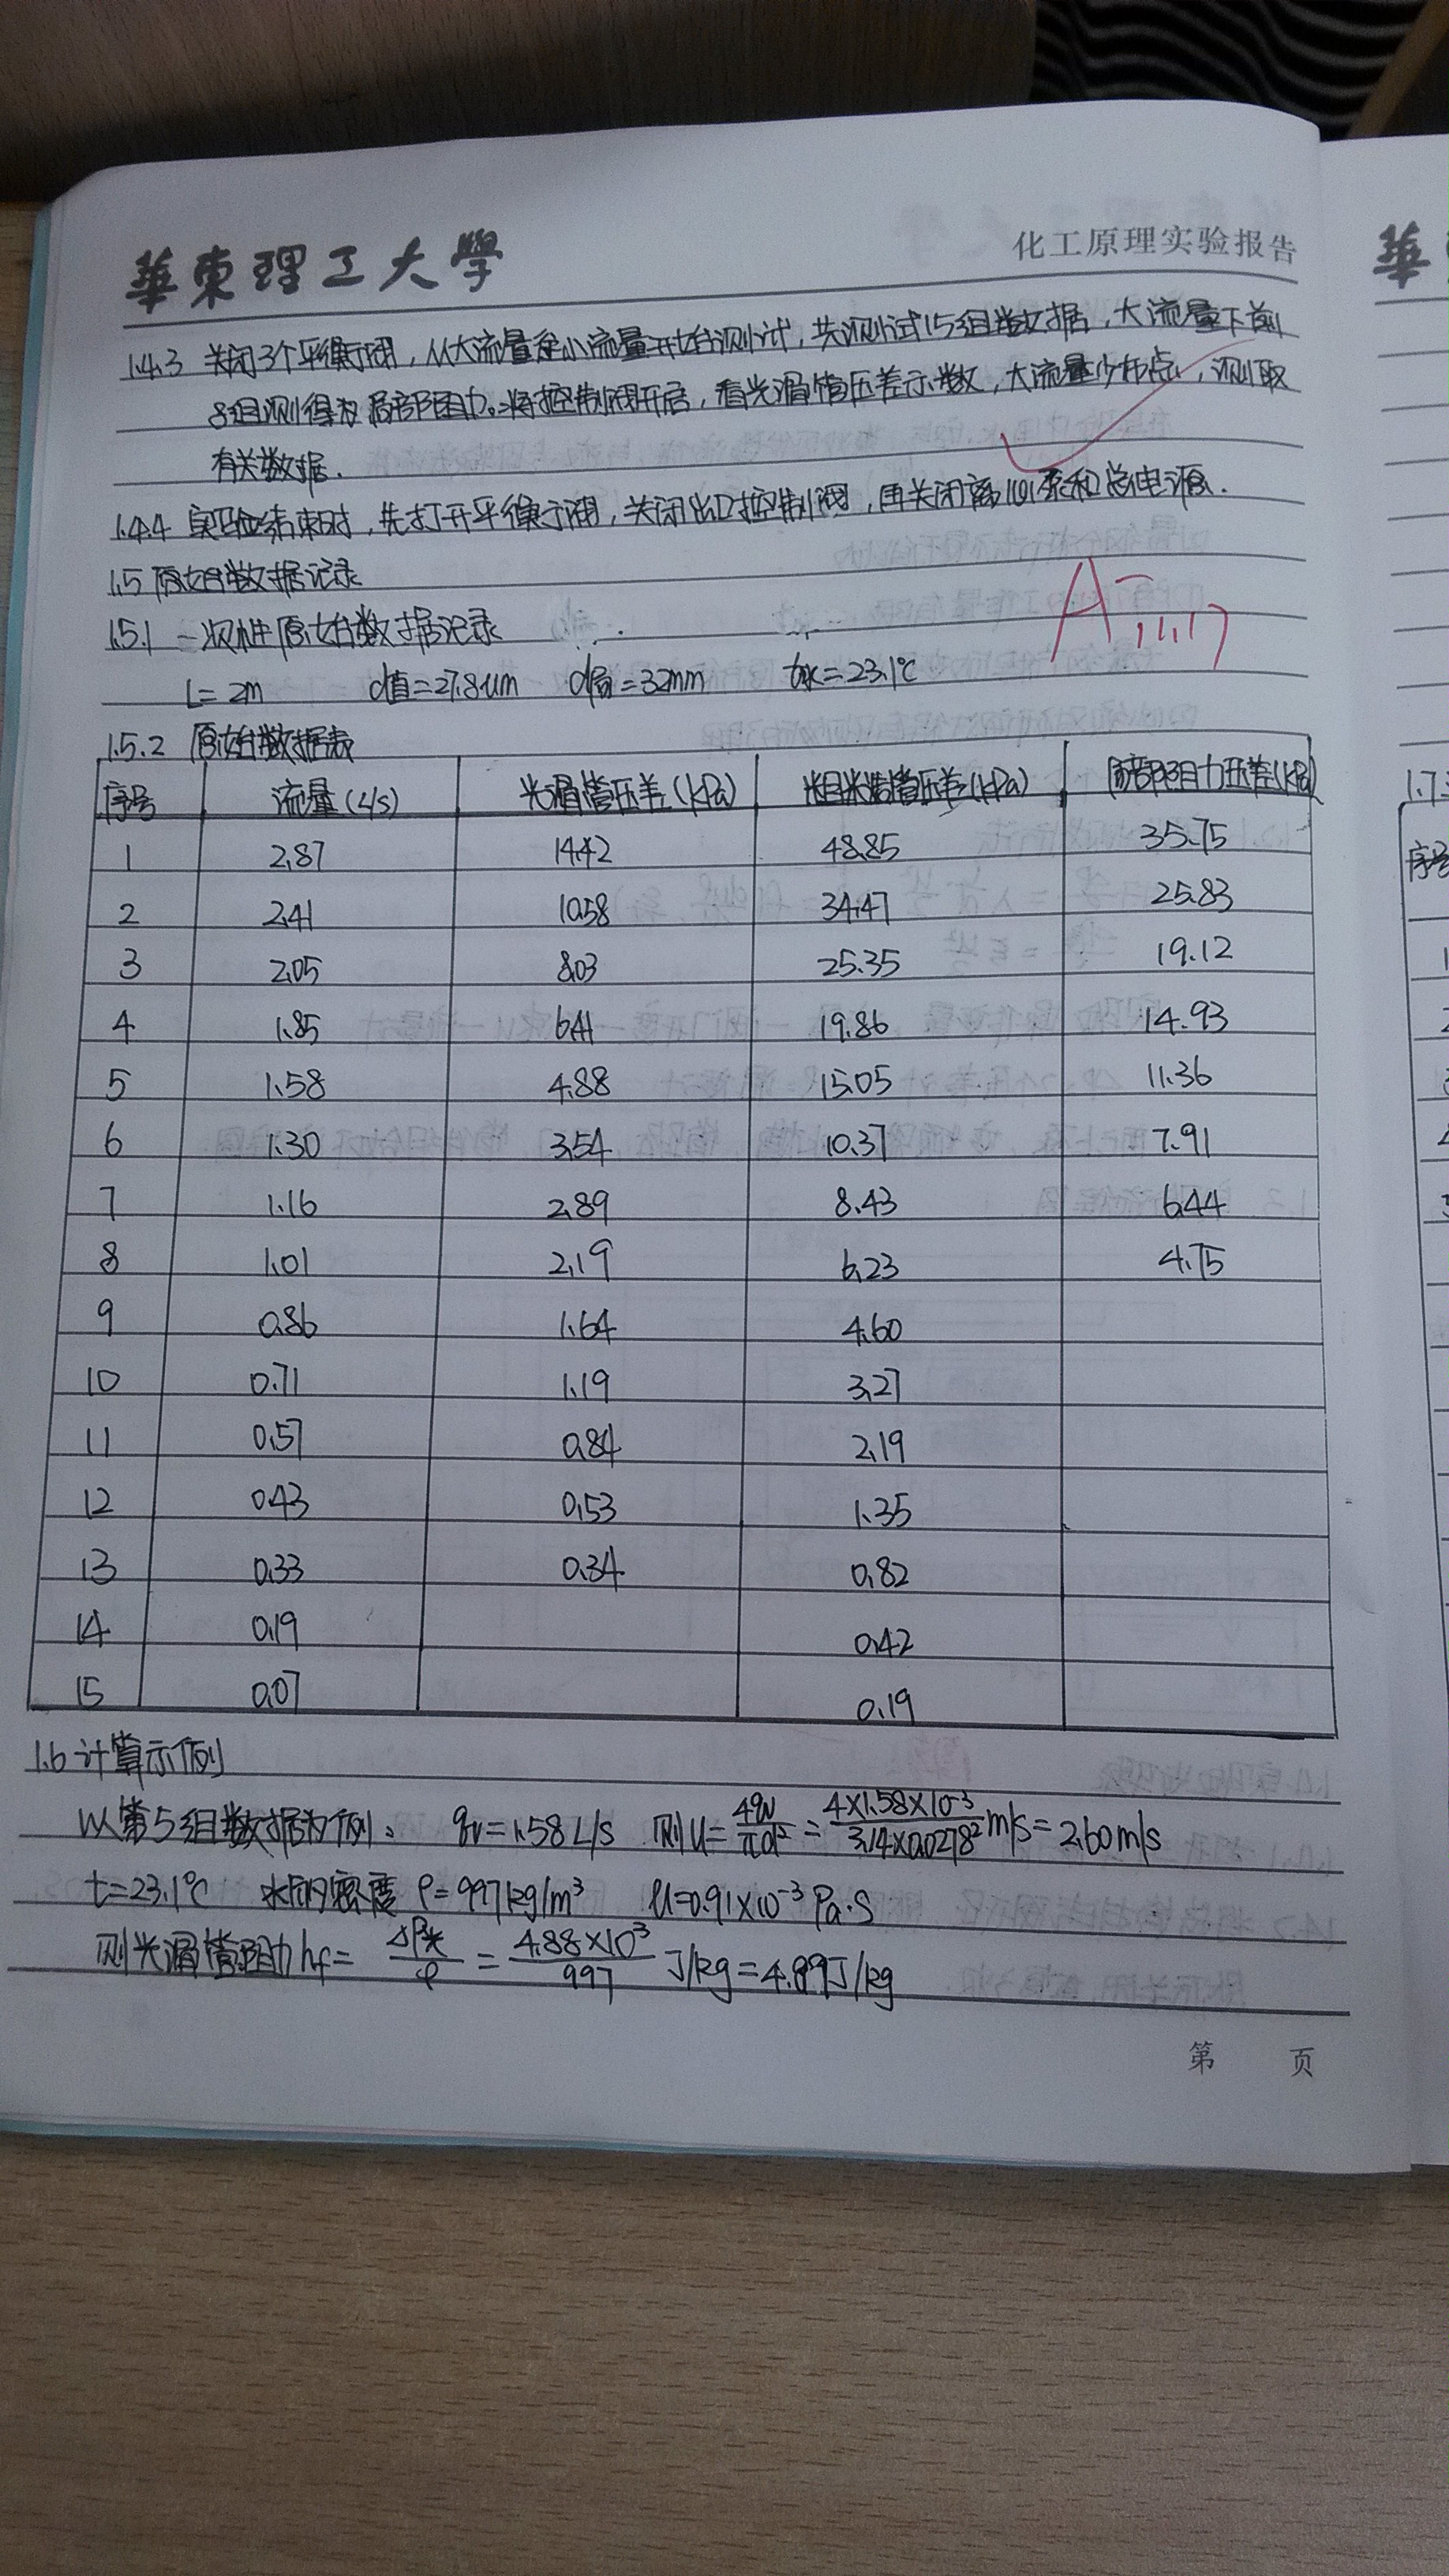 華東理工大學
化工原理实验报告
1.4.3 关闭3个平衡阀,从大流量至小流量开始测试,共测试15组数据,大流量下前
8组测得为局部阻力。将控制阀开启,看光滑管压差示数,大流量少布点,测取
有关数据.
1.4.4 实验结束时,先打开平衡阀,关闭出口控制阀,再关闭离心泵和总电源.
1.5 原始数据记录
1.5.1 一次性原始数据记录
A-
11.17
L=2m d直=27.8mm d局=32mm t水=23.1℃
1.5.2 原始数据表
序号 流量(L/s) 光滑管压差(kPa) 粗糙管压差(kPa) 局部阻力压差(kPa)
1 2.87 14.42 48.85 35.75
2 2.41 10.58 34.47 25.83
3 2.05 8.03 25.35 19.12
4 1.85 6.41 19.86 14.93
5 1.58 4.88 15.05 11.36
6 1.30 3.54 10.37 7.91
7 1.16 2.89 8.43 6.44
8 1.01 2.19 6.23 4.75
9 0.86 1.64 4.60
10 0.71 1.19 3.27
11 0.57 0.84 2.19
12 0.43 0.53 1.35
13 0.33 0.34 0.82
14 0.19 0.42
15 0.07 0.19
1.6 计算示例
以第5组数据为例。 qv=1.58L/s 则u=4qv/πd²=4×1.58×10-3/3.14×0.0278² m/s=2.60m/s
t=23.1℃ 水的密度 ρ=997kg/m³ μ=0.91×10-3 Pa·S
则光滑管阻力hf=ΔP光/ρ=4.88×10³/997 J/kg=4.89J/kg
第 页
華
1.7
序号